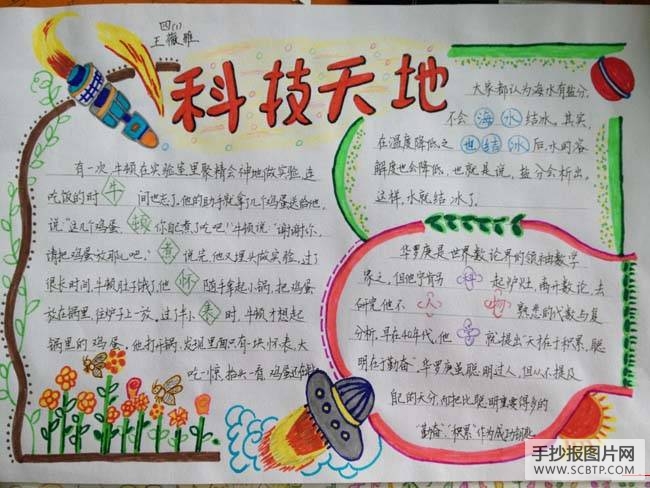 四(1)
王薇雅
科技天地
有一次,牛顿在实验室里聚精会神地做实验,连
吃饭的时牛间也忘了。他的助手就拿了几个鸡蛋送给他,
说:"这几个鸡蛋,顿你配煮了吃吧!"牛顿说:"谢谢你,
请把鸡蛋放那儿吧。"煮说完,他又埋头做实验,过了
很长时间,牛顿肚子饿了,他怀随手拿起小锅,把鸡蛋
放在锅里,往炉子上一放。过了半小表时,牛顿才想起
锅里的鸡蛋,他打开锅,发现里面只有一块怀表,大
吃一惊,抬头一看,鸡蛋还在
大家都认为海水有盐分,
不会海水结冰。其实,
在温度降低之也结冰后,水的溶
解度也会降低,也就是说,盐分会析出,
这样,水就结冰了。
华罗庚是世界数论界的领袖数学
家之一,但他宁肯另科起炉灶,离开数论,去
研究他不人物熟悉的代数与复
分析。早在40年代,他就提出"天才在于积累,聪
明在于勤奋"。华罗庚虽聪明过人,但从不提及
自己的天分,而把比聪明重要得多的
"勤奋""积累"作为成功
手抄报图片网
WWW.SCBTP.COM